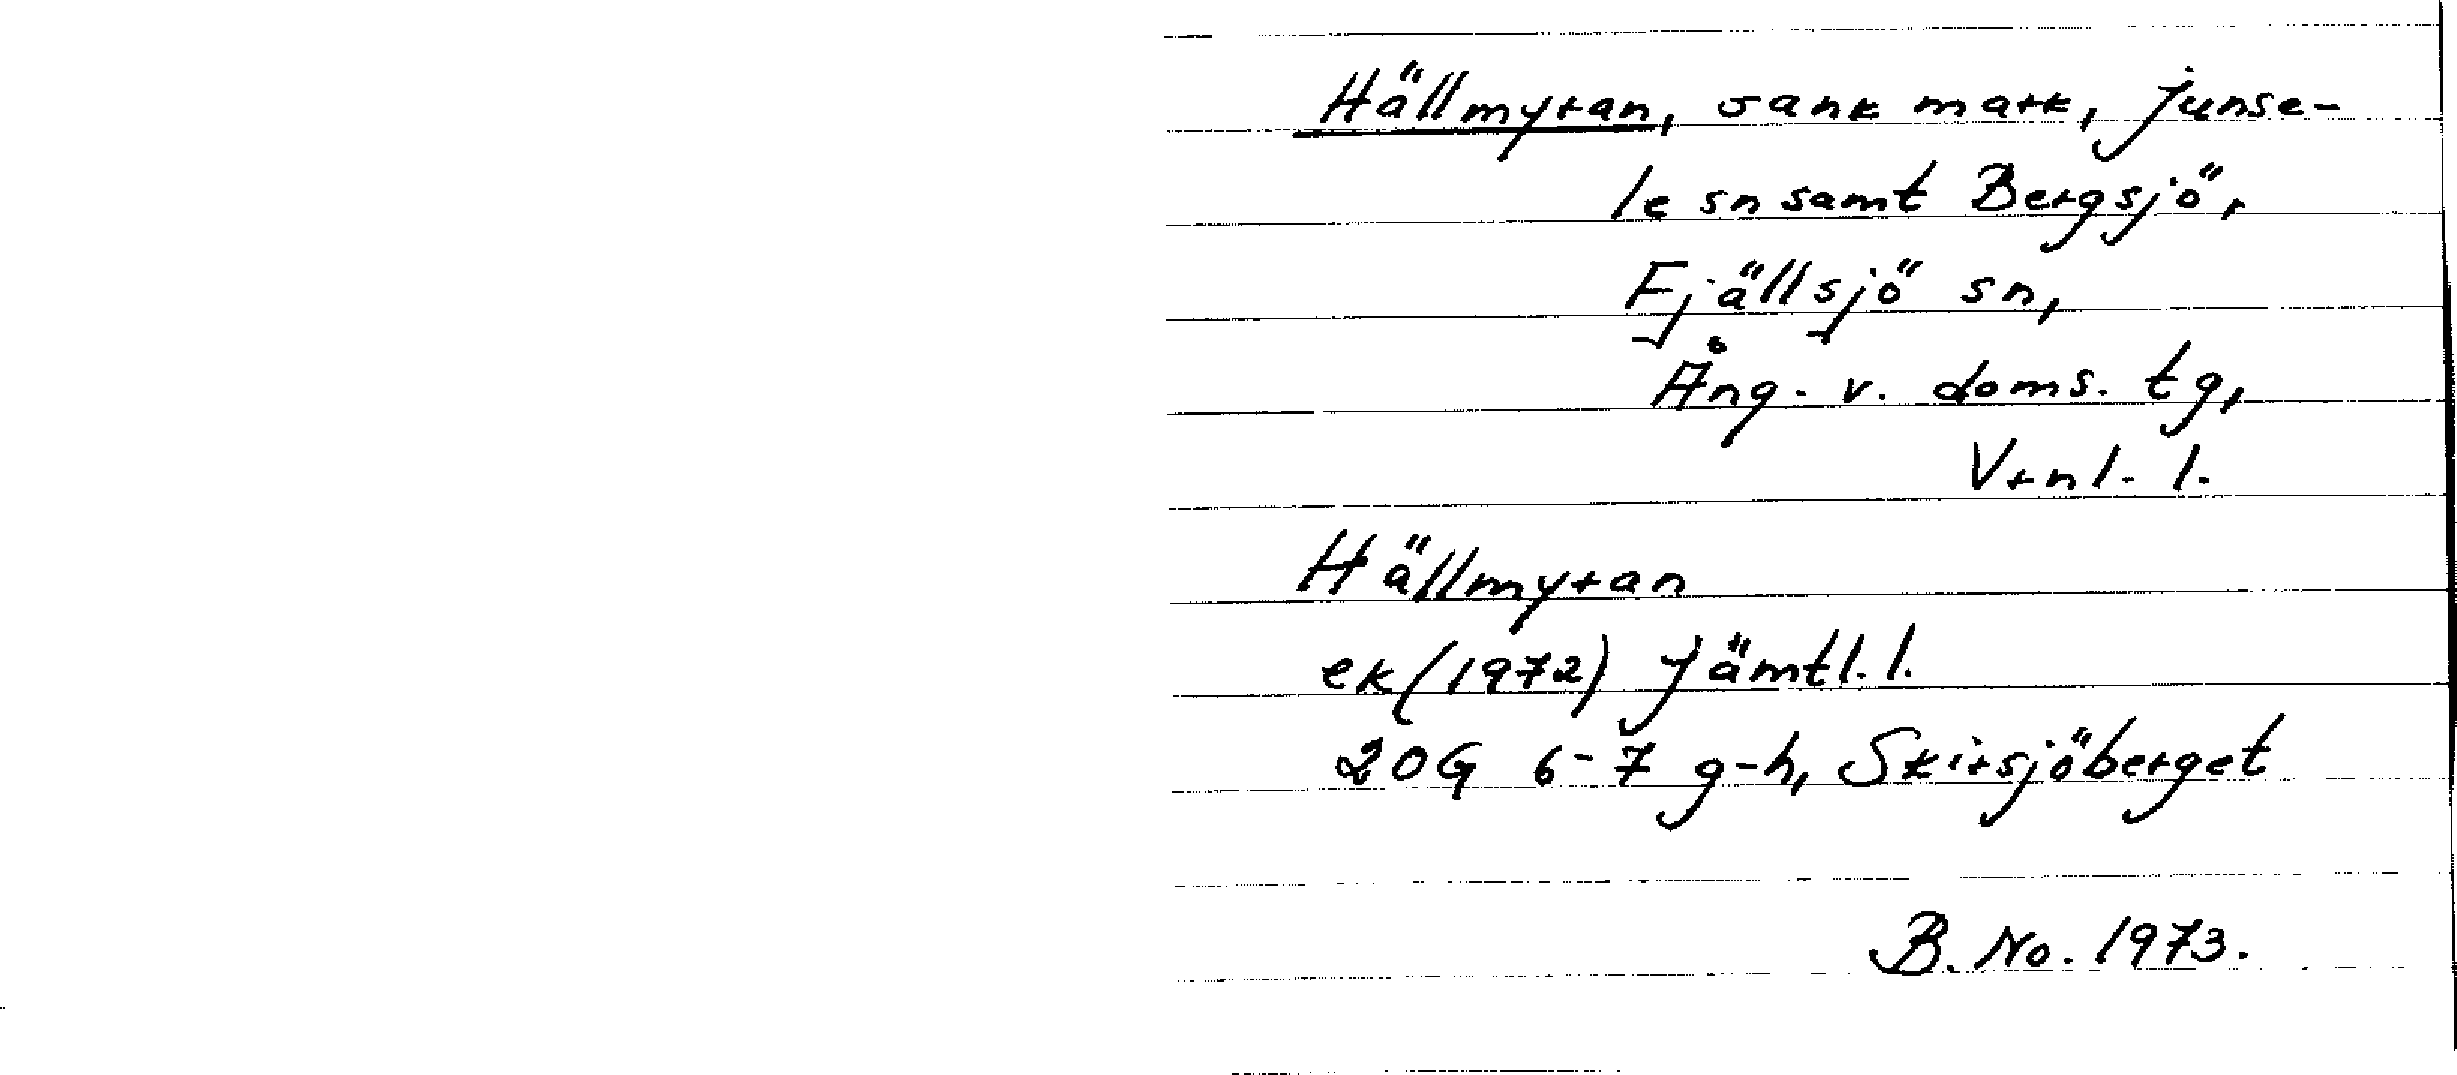 Hällmyran, sank mark, Junse-
le sn samt Bergsjö,
Fjällsjö sn,
Ång. v. doms. tg,
Vrnl. l.
Hällmyran
ek (1972) Jämtl. l.
20G 6-7 g-h, Skirsjöberget
B. No. 1973.